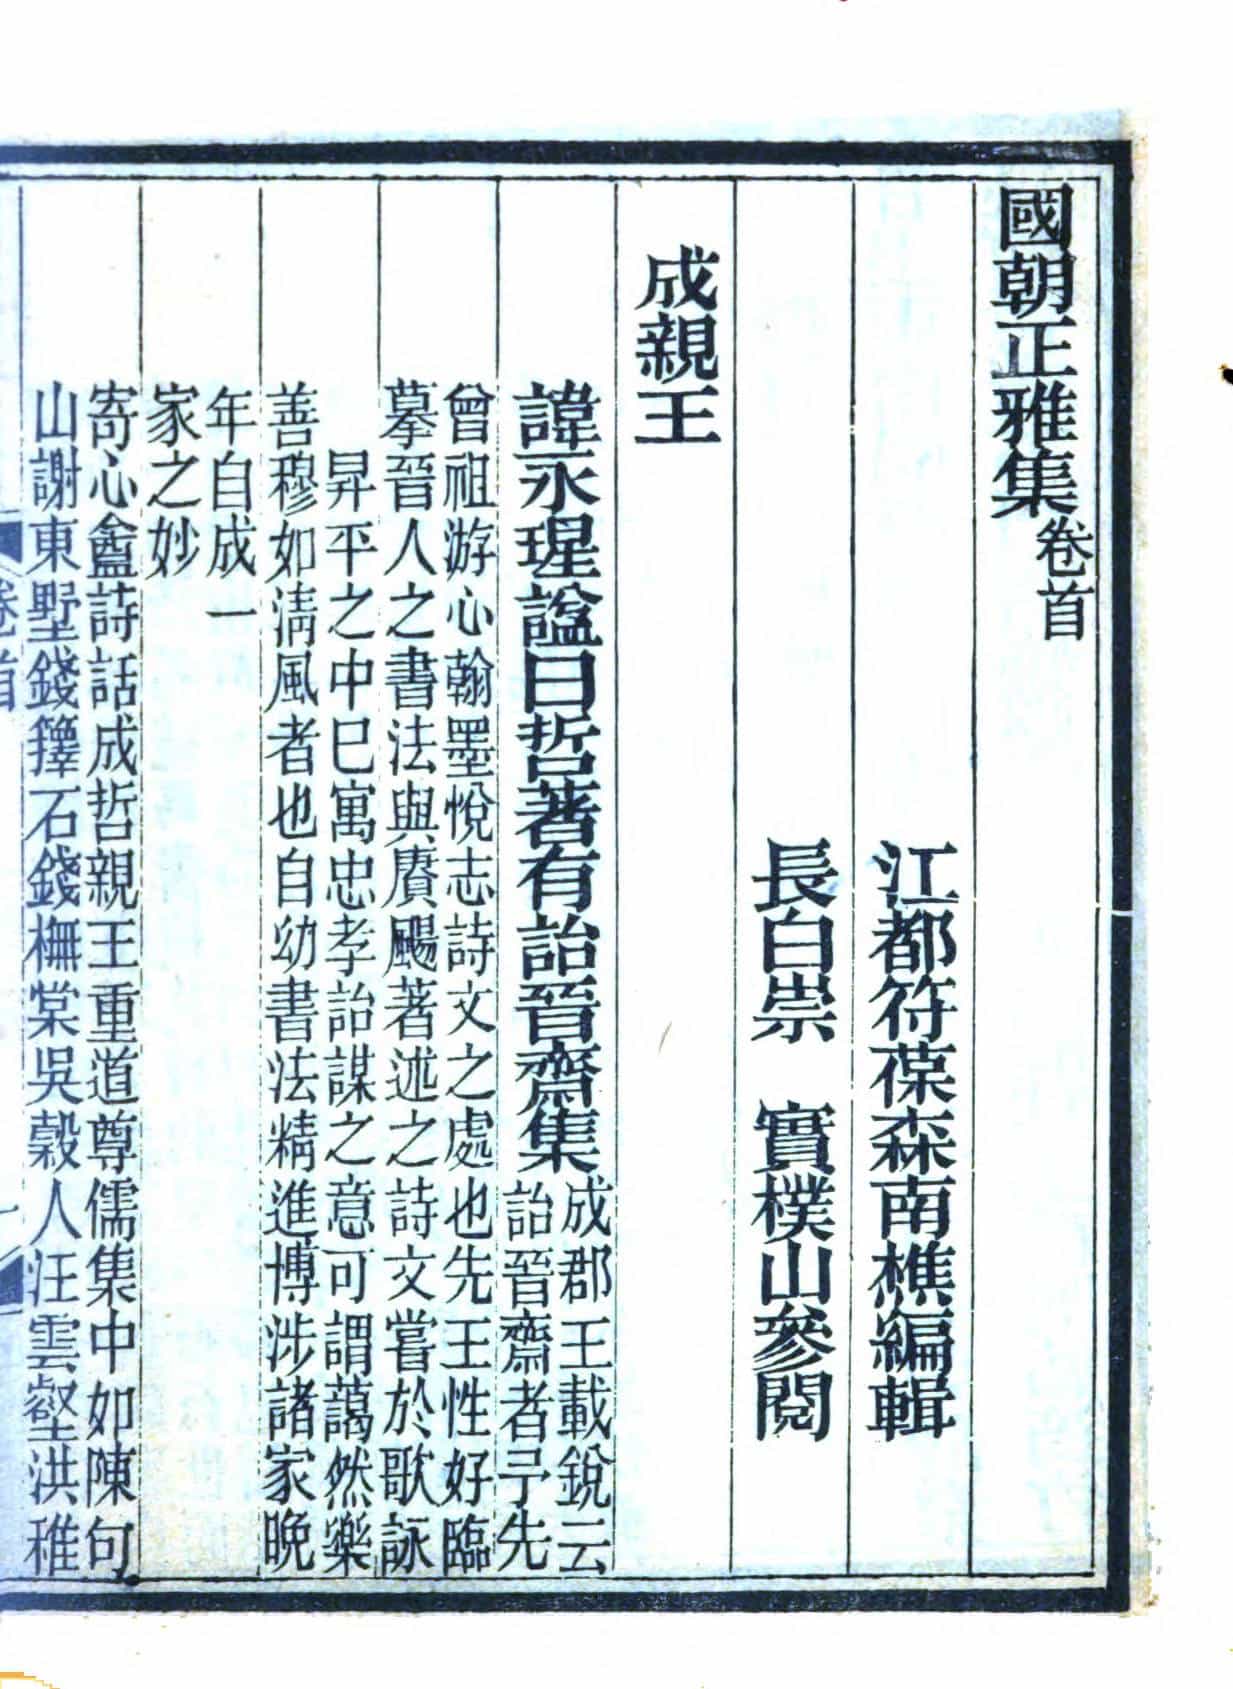 國朝正雅集卷首
江都符葆森南樵編輯
長白崇　實樸山參閱
成親王
諱永瑆諡曰哲著有詒晉齋集成郡王載銳云
詒晉齋者予先
曾祖游心翰墨悅志詩文之處也先王性好臨
摹晉人之書法與賡颺著述之詩文嘗於歌詠
昇平之中已寓忠孝詒謀之意可謂藹然樂
善穆如清風者也自幼書法精進博涉諸家晚
年自成一
家之妙
寄心盦詩話成哲親王重道尊儒集中如陳句
山謝東墅錢籜石錢橅棠吳穀人汪雲壑洪稚
卷首